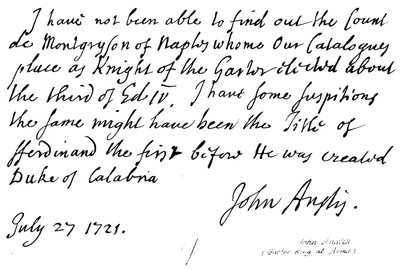 I have not been able to find out the Count
de Montgryson of Naples whome Our Catalogues
place as Knight of the Garter elected about
the third of Ed: IV. I have some suspitions
the same might have been the Title of
fferdinand the first before He was created
Duke of Calabria
John Anstis.
July 27 1721.
John Anstis
(Garter King at Arms)